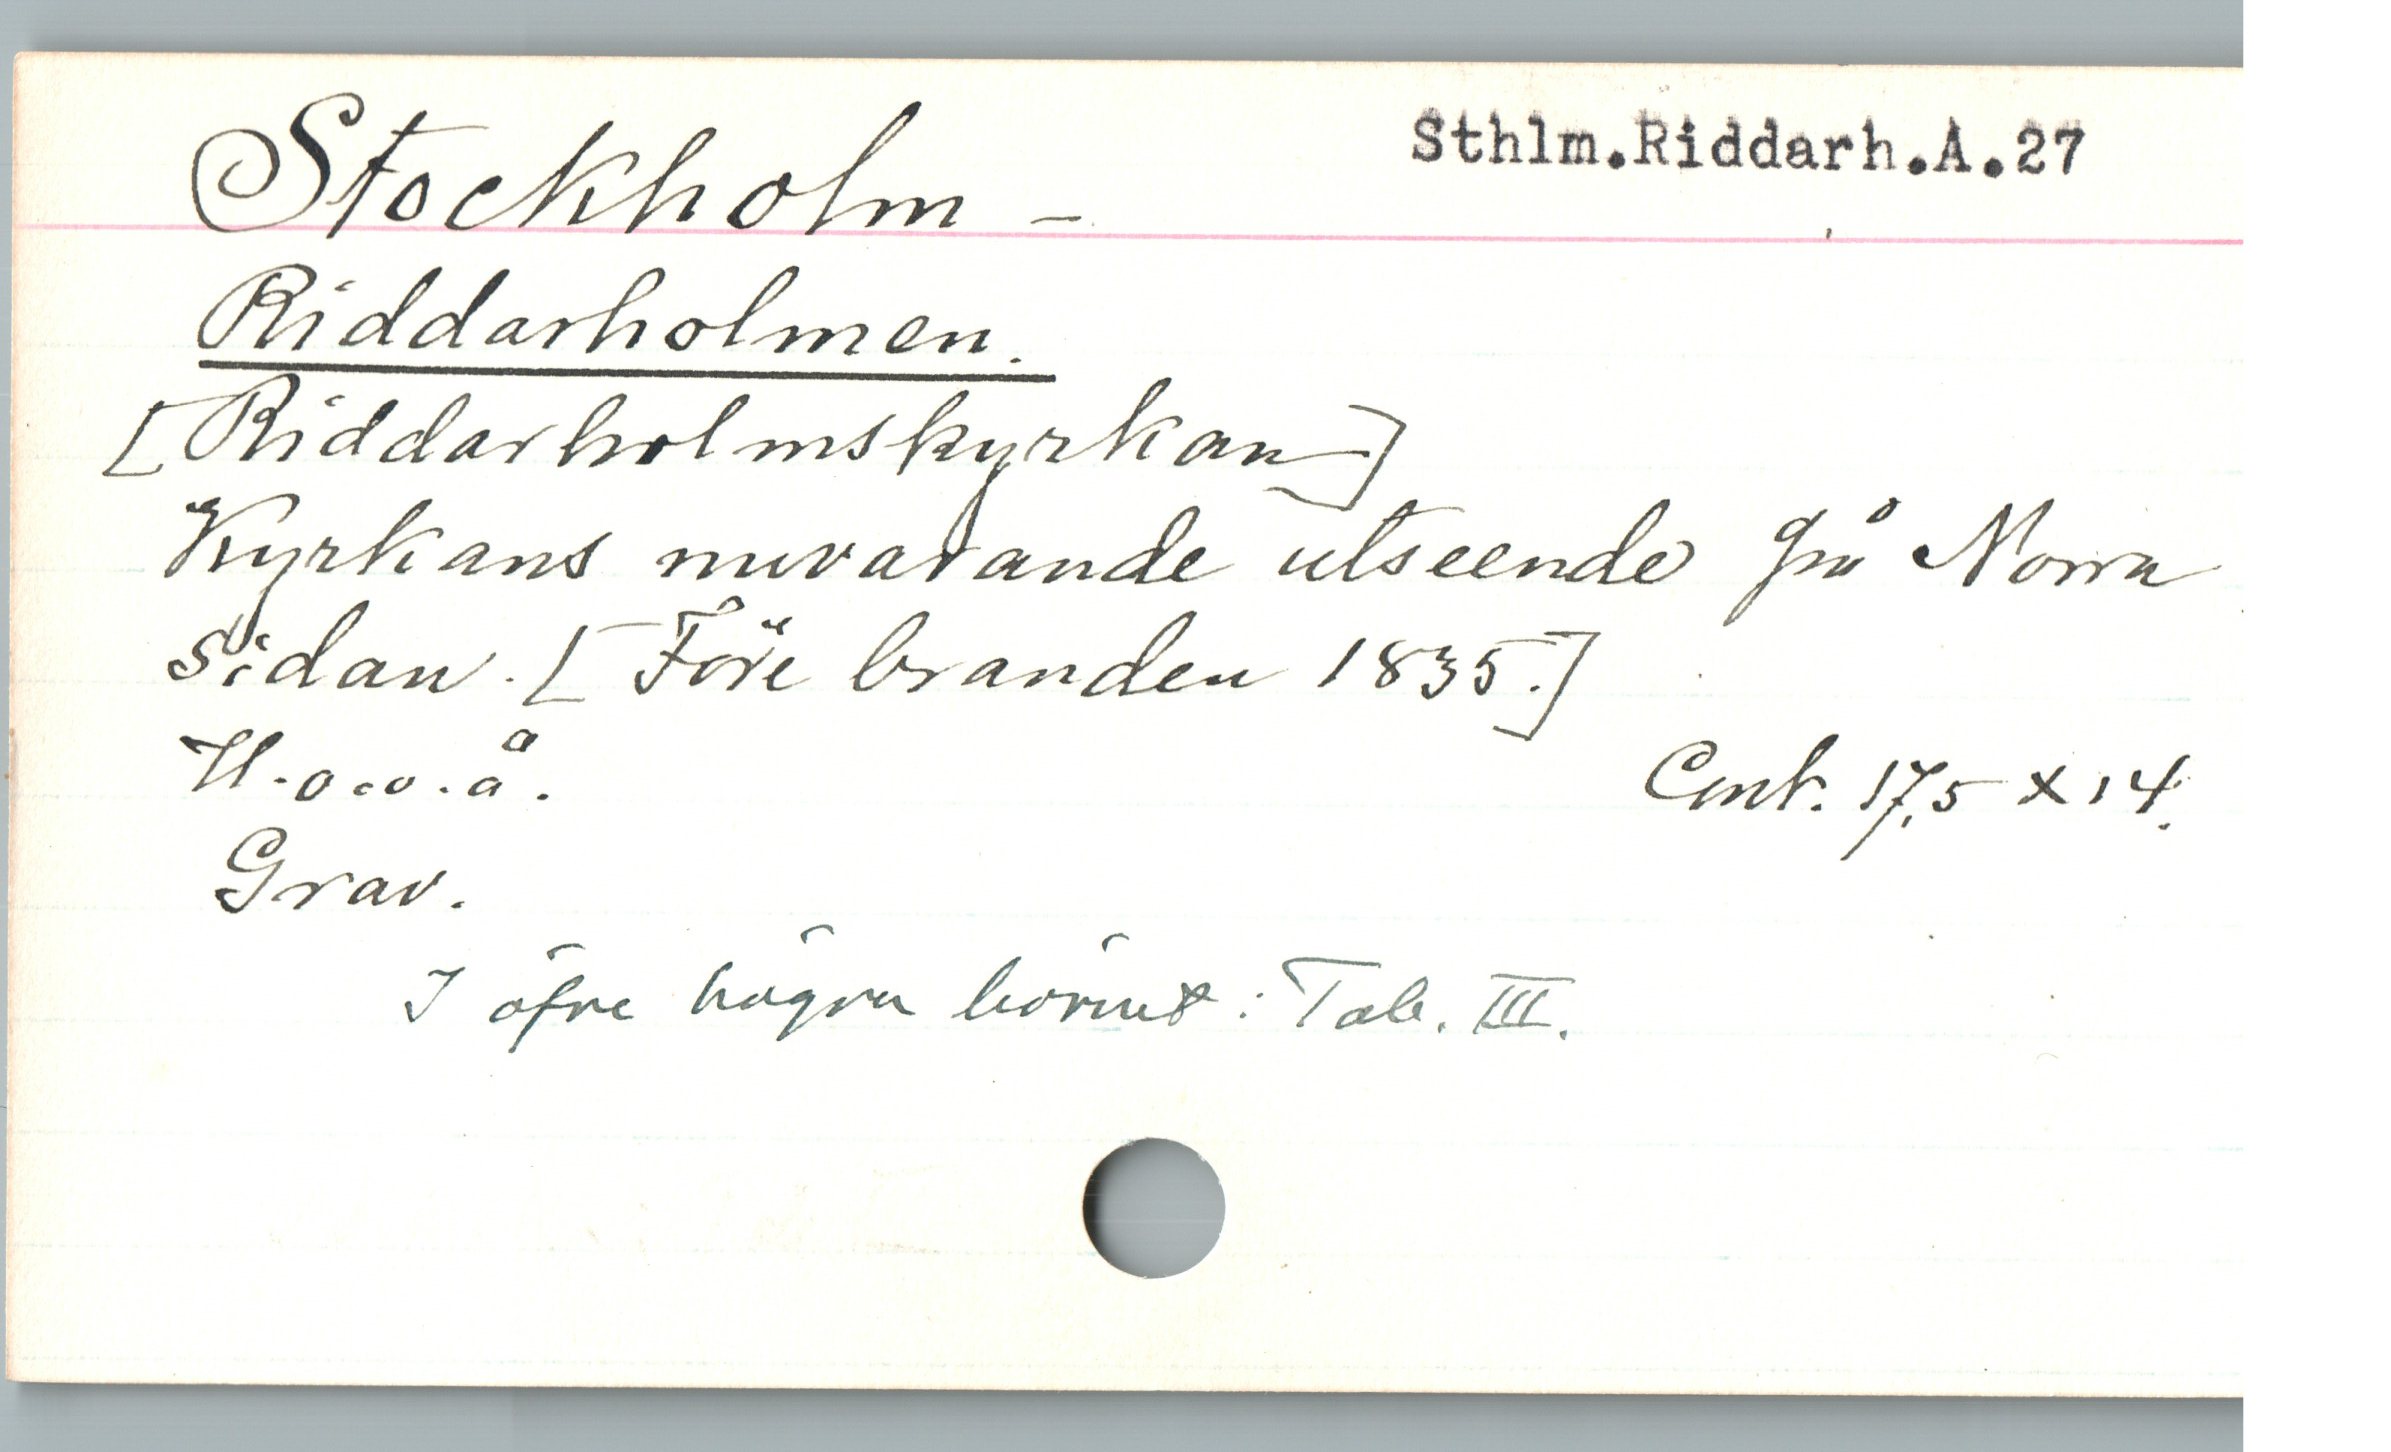 Sthlm.Riddarh.A.27
Stockholm –
Riddarholmen.
[Riddarholmskyrkan]
Kyrkans nuvarande utseende på Norra
Sidan. [Före branden 1835.]
U.o.o.å.
Cmt. 17,5 × 14.
Grav.
I öfre högra hörnet: Tab. III.